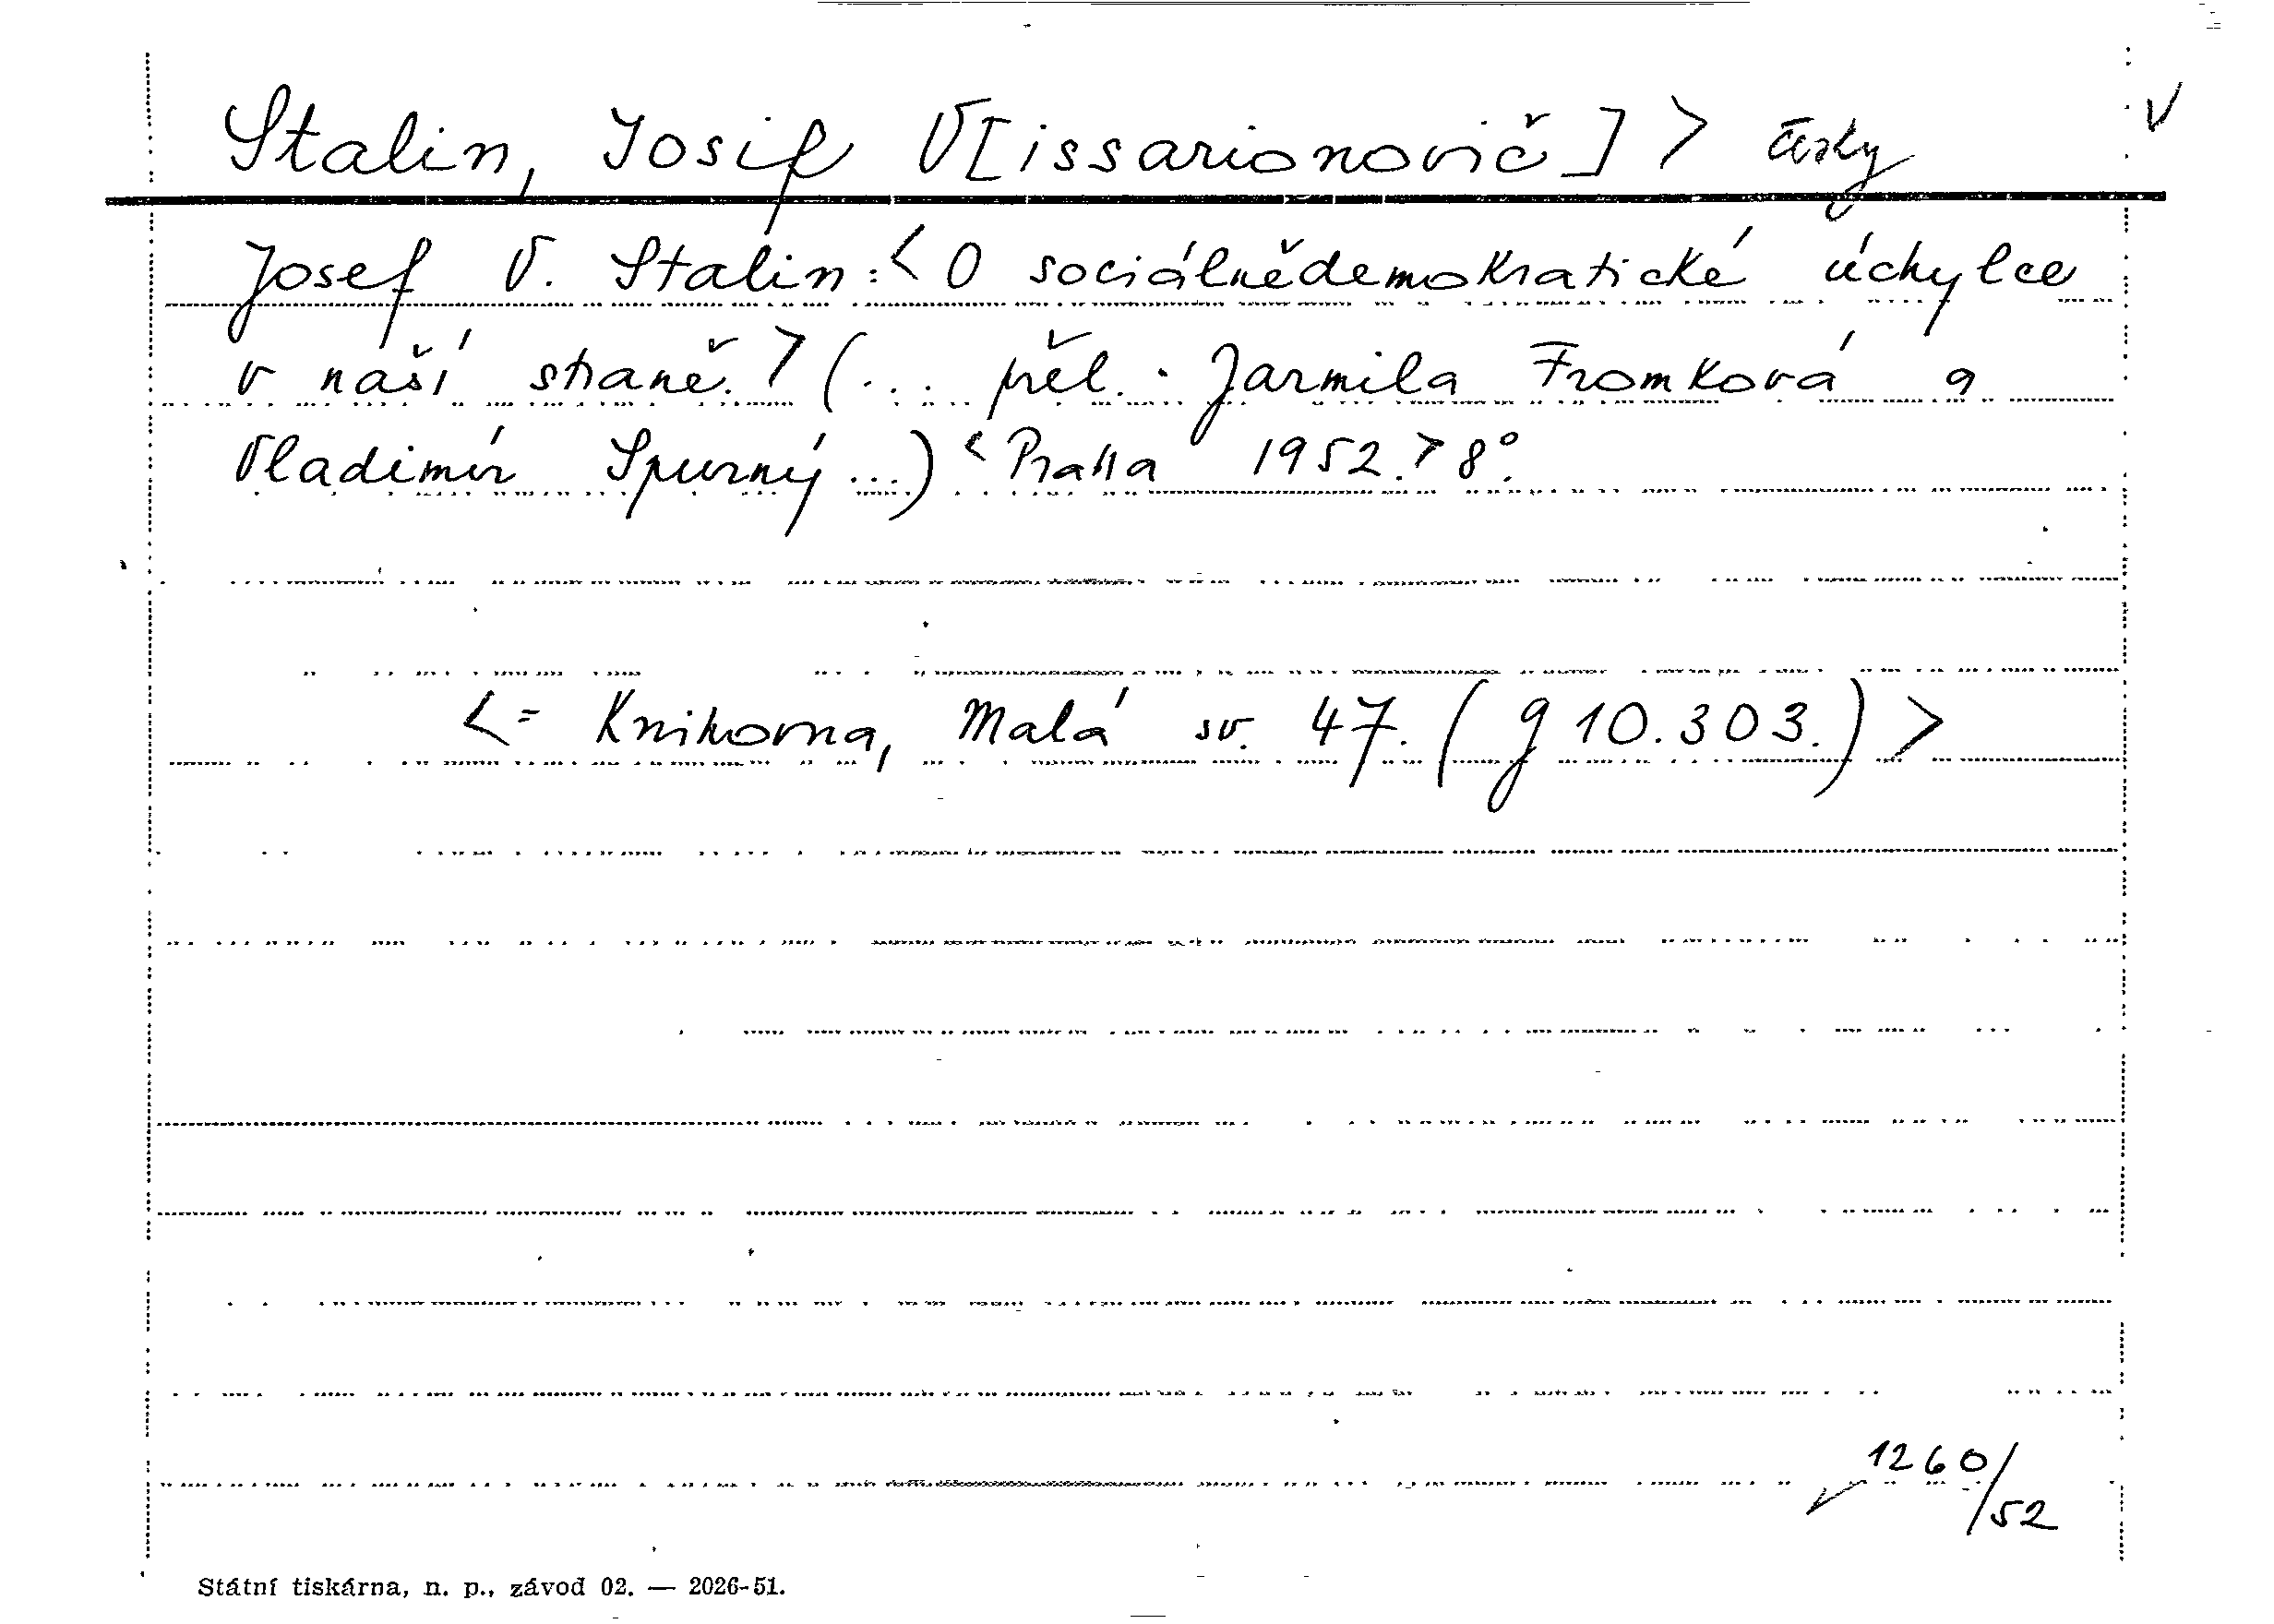 Stalin, Josif V[issarionovič] > česky
Josef V. Stalin: < O sociálnědemokratické úchylce
v naší straně. > (... přel. Jarmila Fromková a
Vladimír Spurný ...) < Praha 1952. > 8°.
< = Knihovna, Malá sv. 47. (g 10.303.) >
1260/52
Státní tiskárna, n. p., závod 02. — 2026-51.